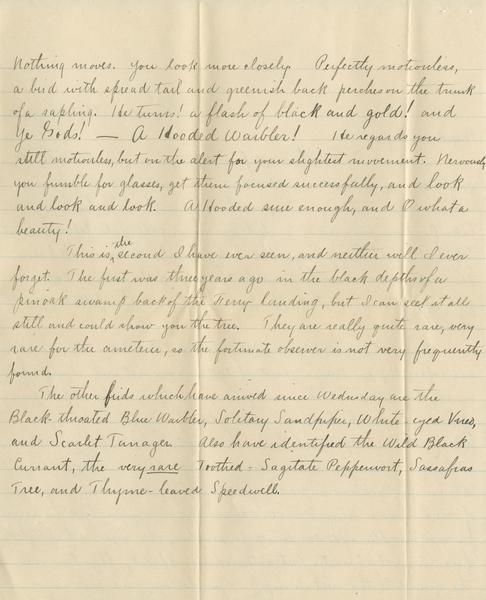 Nothing moves. You look more closely. Perfectly motionless,
a bird with spread tail and greenish back perches on the trunk
of a sapling. He turns! a flash of black and gold! and
Ye Gods! — A Hooded Warbler! He regards you
still motionless, but on the alert for your slightest movement. Nervously
you fumble for glasses, get them focused successfully, and look
and look and look. A Hooded sure enough, and O what a
beauty!
This is the second I have ever seen, and neither will I ever
forget. The first was three years ago in the black depths of a
pin oak swamp back of the Ferry landing, but I can see it all
still and could show you the tree. They are really quite rare, very
rare for the ameteur, so the fortunate observer is not very frequently
found.
The other birds which have arrived since Wednesday are the
Black-throated Blue Warbler, Solitary Sandpiper, White-eyed Vireo,
and Scarlet Tanager. Also have identified the Wild Black
Currant, the very rare Toothed-Sagitate Pepperwort, Sassafras
Tree, and Thyme-leaved Speedwell.